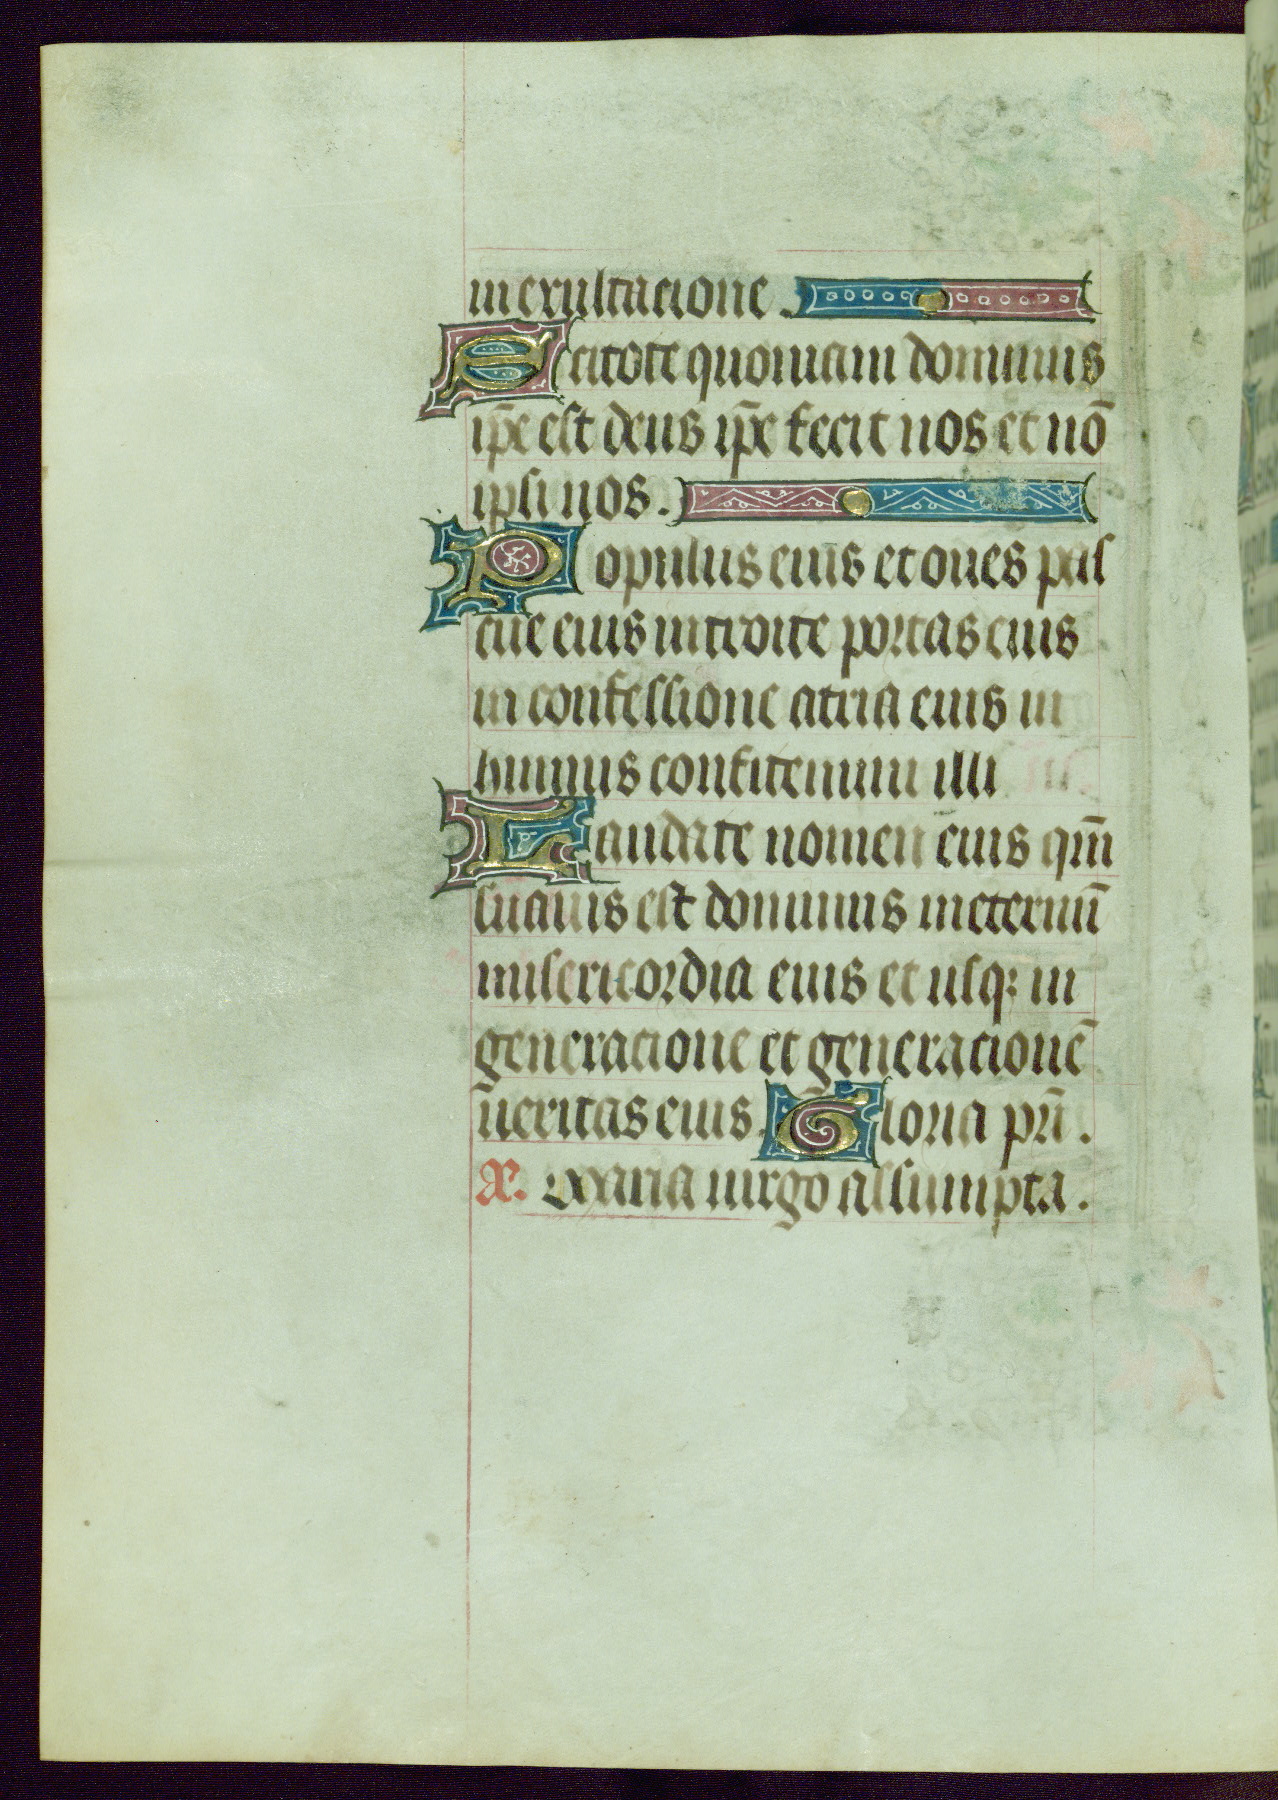 in exultacione.
Scitote quoniam dominus
ip̄e est deus ip̄e fecit nos et nō
ipsi nos.
Populus eius et oues pas
cue eius introite portas eius
in confessione atria eius in
himnis confitemini illi
Laudate nomen eius qm̄
suauis est dominus ineternū
misericordia eius et usq; in
generacione et generacionē
ueritas eius. Gloria pr̄i.
A. Maria uirgo assumpta.